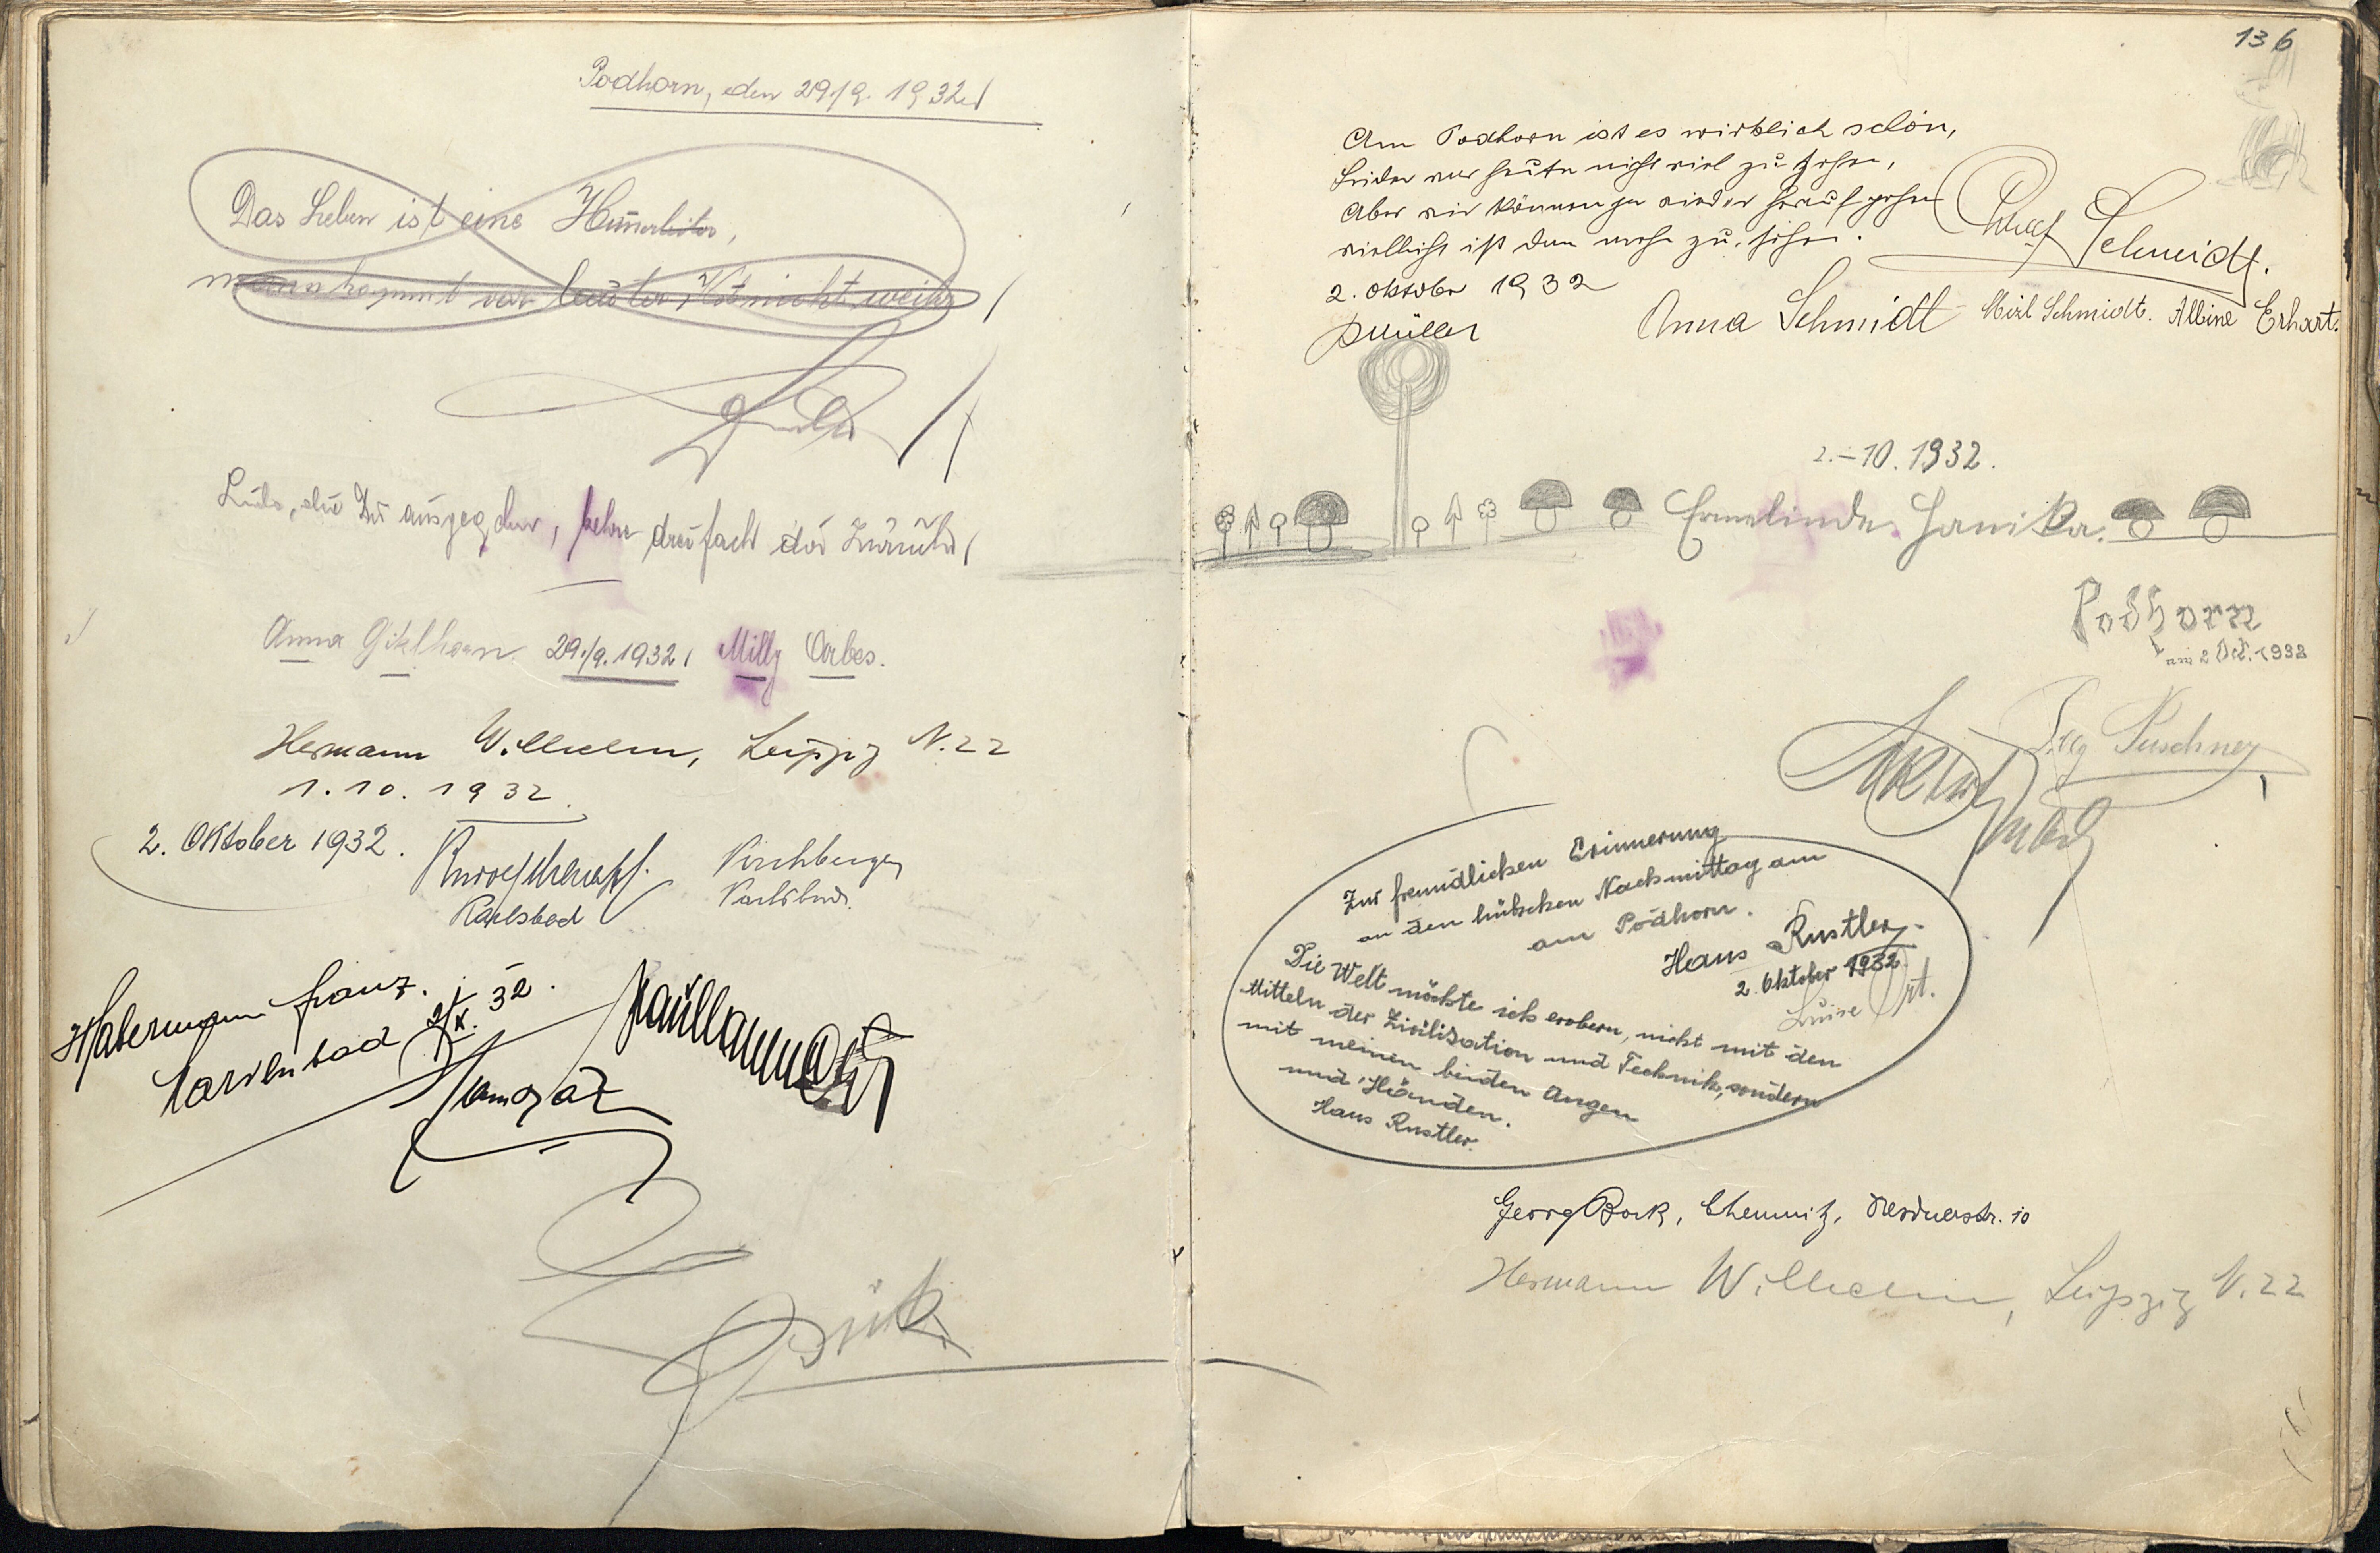 Podhorn, den 29./9. 1932
Das Leben ist eine
man kommt vor lauter nicht weiter
die Du ausgegeben, kehre dreifach dir zurück
Anna Giklhorn 29./9. 1932 Milly
Hermann Wilhelm, Leipzig N. 22
1. 10. 1932.
2. Oktober 1932.
Kirchberger
Karlsbad
Karlsbad.
Habermann Franz.
Marienbad 2/X. 32.
136
Am Podhorn ist es wirklich schön,
Leider war heute nicht viel zu sehen,
Aber wir können ja wieder herauf gehn
vielleicht ist dan mehr zu sehen.
Schmidt.
2. Oktober 1932
Müller
Anna Schmidt Mizl Schmidt. Albine Erhart.
2.-10. 1932.
Ermelinde Janika.
Podhorn
am 2 Oct. 1932
Puschner
Zur freundlichen Erinnerung
an den hübschen Nachmittag am
am Podhorn.
Hans Rustler.
2. Oktober 1932.
Luise Ort.
Die Welt möchte ich erobern, nicht mit den
Mitteln der Zivilisation und Technik, sondern
mit meinen beiden Augen
und Händen.
Hans Rustler.
Georg Bock, Chemnitz, Dresdnerstr. 10
Hermann Wilhelm, Leipzig N. 22